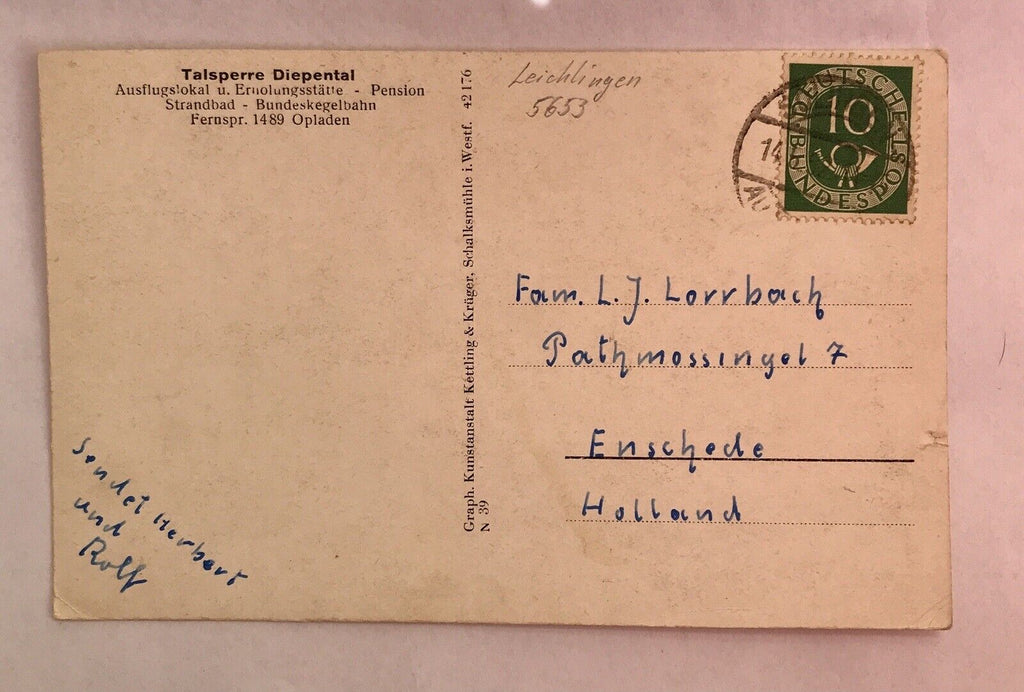 Talsperre Diepental
Ausflugslokal u. Erholungsstätte - Pension
Strandbad - Bundeskegelbahn
Fernspr. 1489 Opladen
Sendet Herbert
und
Rolf
Graph. Kunstanstalt Kettling & Krüger, Schalksmühle i. Westf. 42 176
N 39
Leichlingen
5653
DEUTSCHE
BUNDESPOST
10
14
AU
Fam. L. J. Lorrbach
Pathmossingel 7
Enschede
Holland